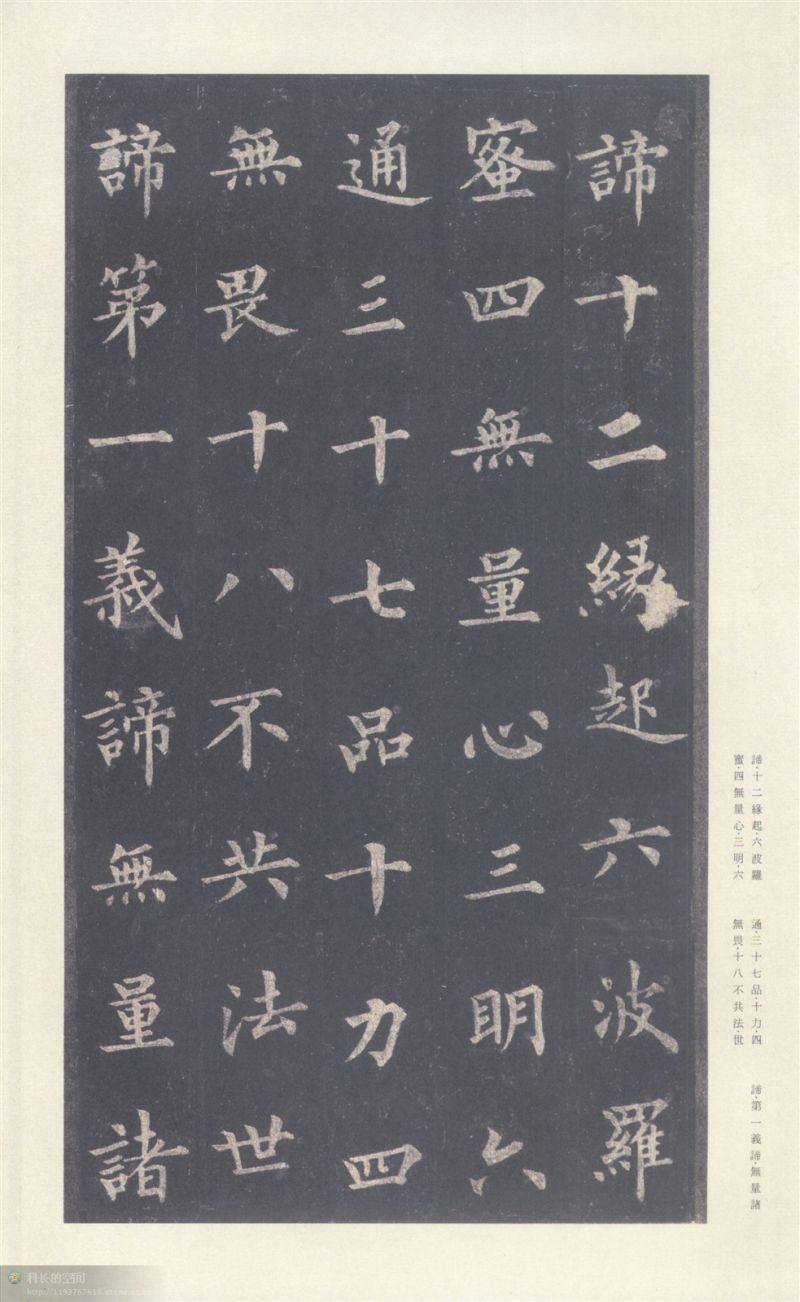 諦十二緣起六波羅
蜜四無量心三明六
通三十七品十力四
無畏十八不共法世
諦第一義諦無量諸
諦·十二緣起·六波羅
蜜·四無量心·三明·六
通·三十七品·十力·四
無畏·十八不共法·世
諦·第一義諦·無量諸
科长的空间